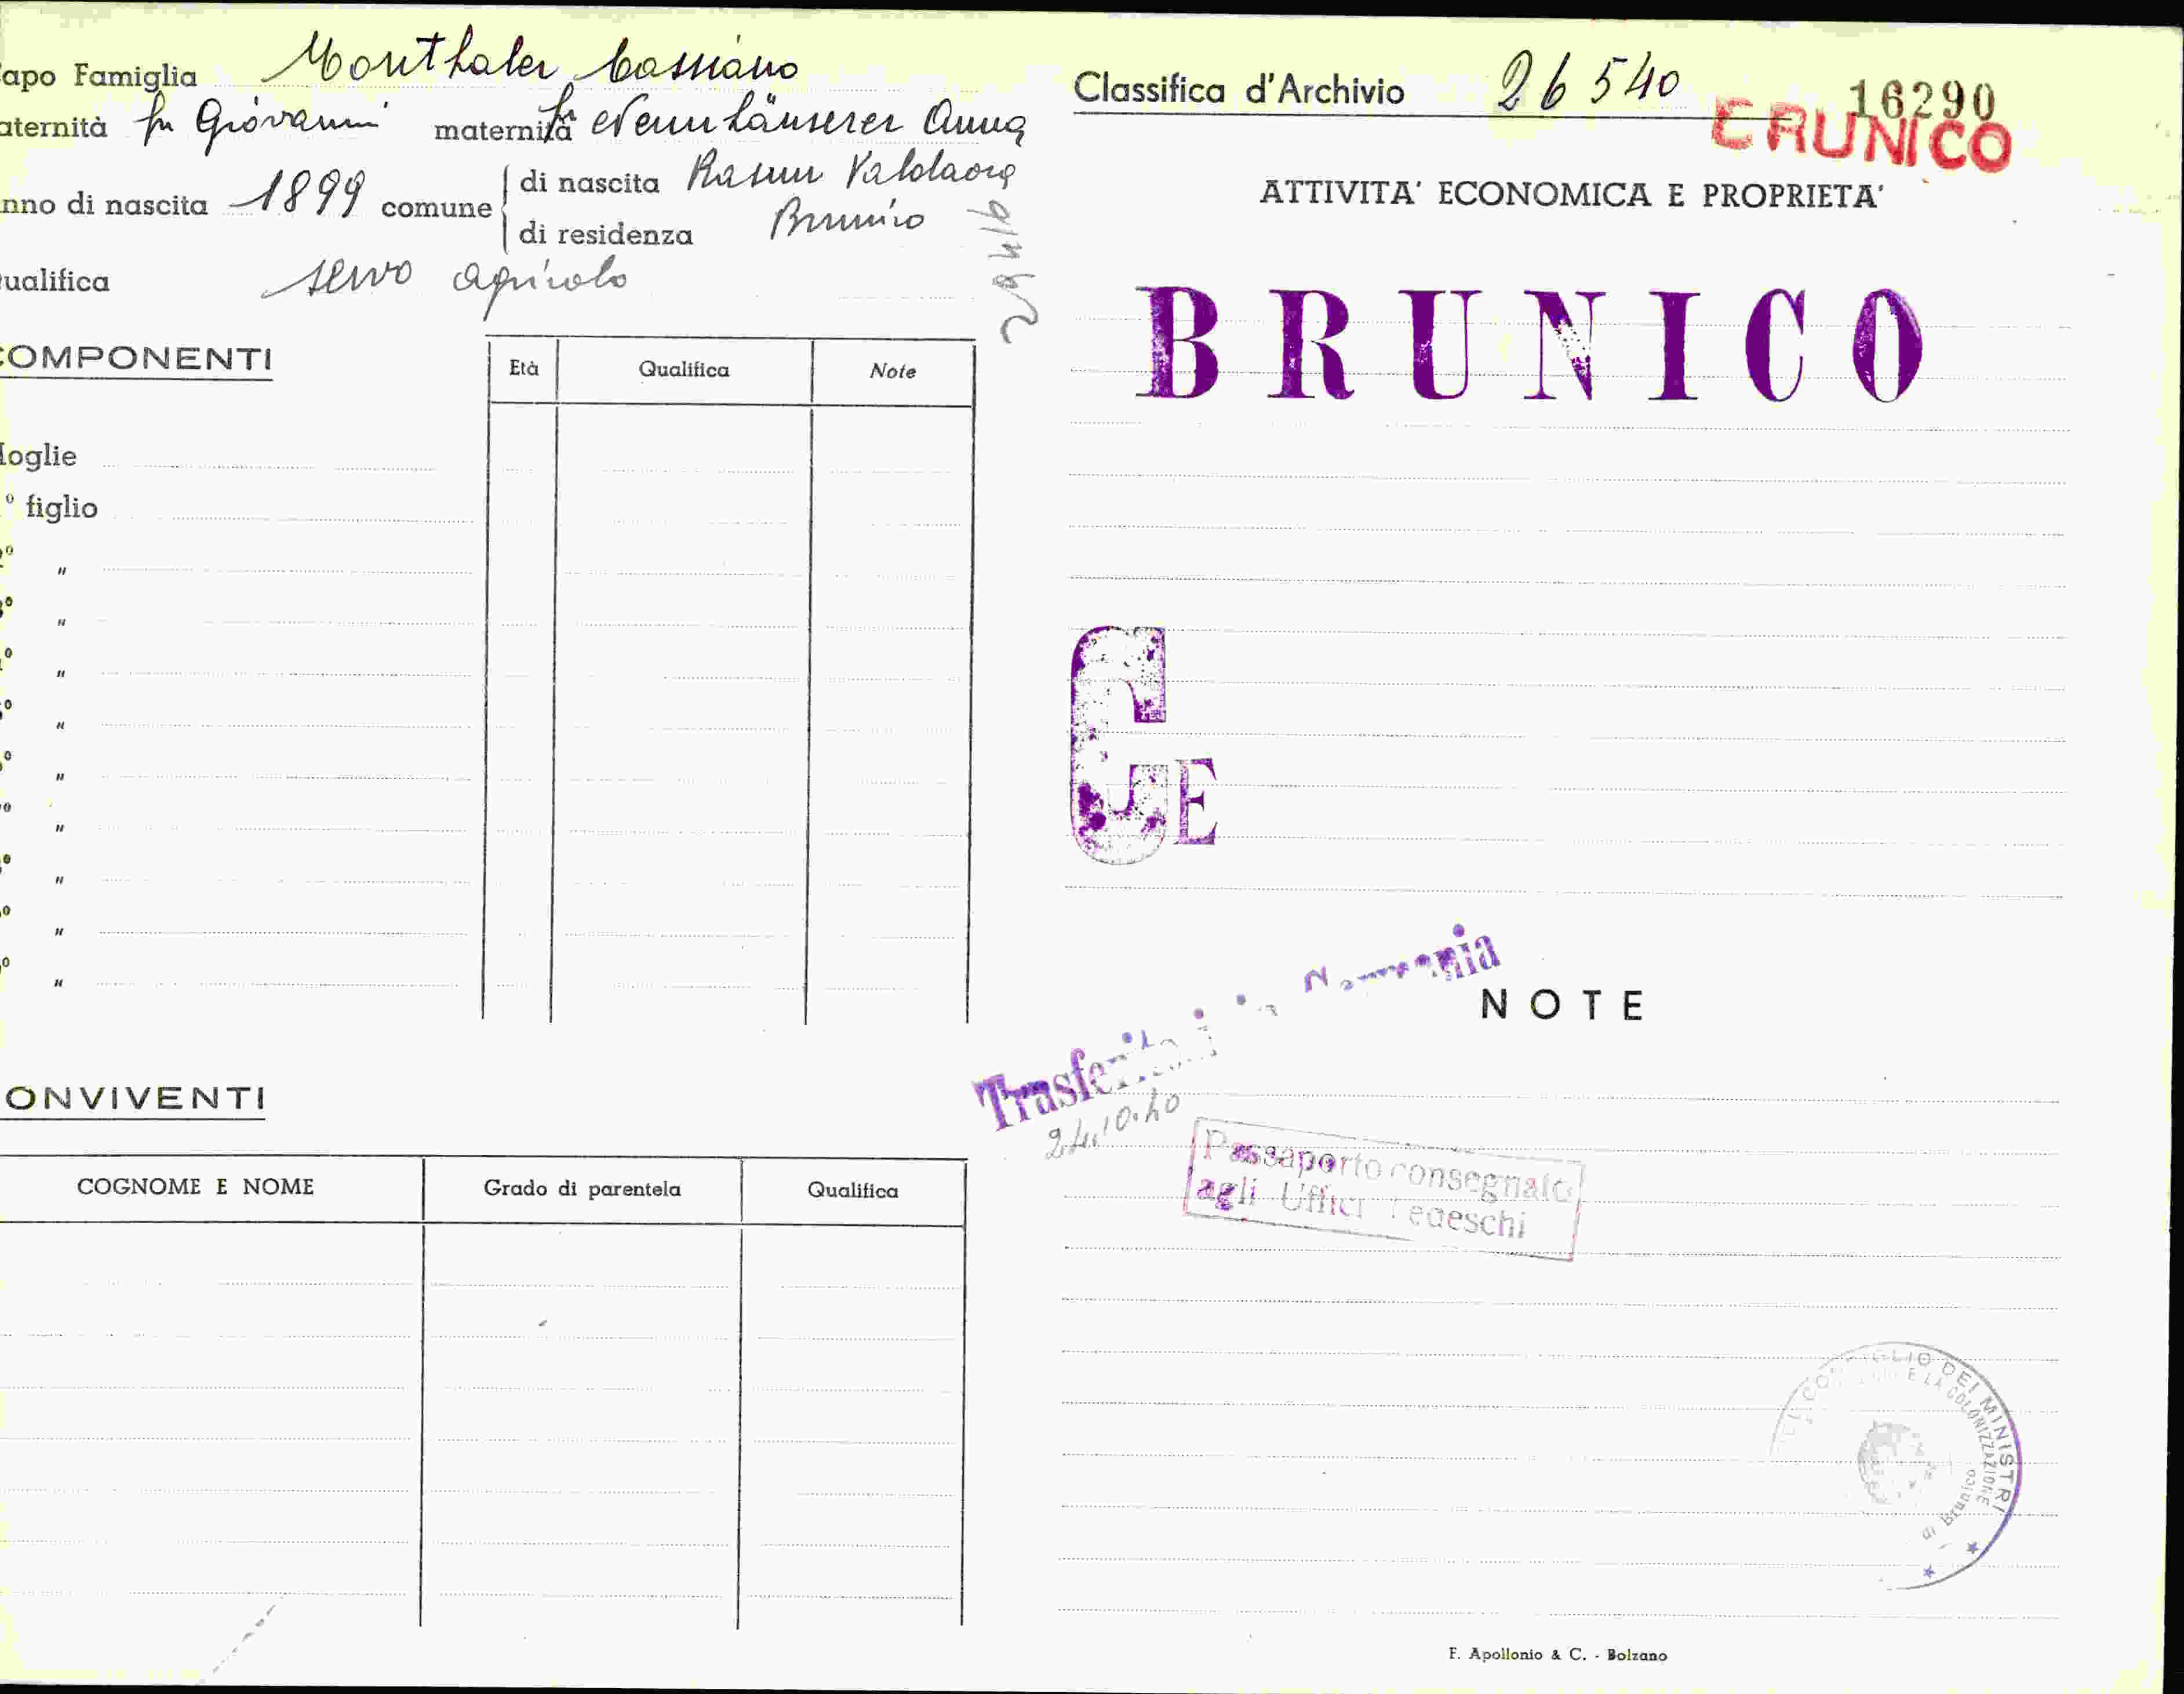 apo Famiglia Monthaler Cassiano
aternità fu Giovanni maternità fu Neunhäuserer Anna
nno di nascita 1899 comune di nascita Rasun Valdaora
di residenza Brunico
ualifica servo agricolo
COMPONENTI
Età Qualifica Note
oglie
° figlio
"
"
"
"
"
"
"
"
"
ONVIVENTI
COGNOME E NOME Grado di parentela Qualifica
Classifica d'Archivio 26540
16290
BRUNICO
ATTIVITA' ECONOMICA E PROPRIETA'
BRUNICO
G E
NOTE
Trasferitosi in Germania
24.10.40
Passaporto consegnato
agli Uffici Tedeschi
CONSIGLIO DEI MINISTRI
E LA COLONIZZAZIONE
di Brunico
F. Apollonio & C. - Bolzano